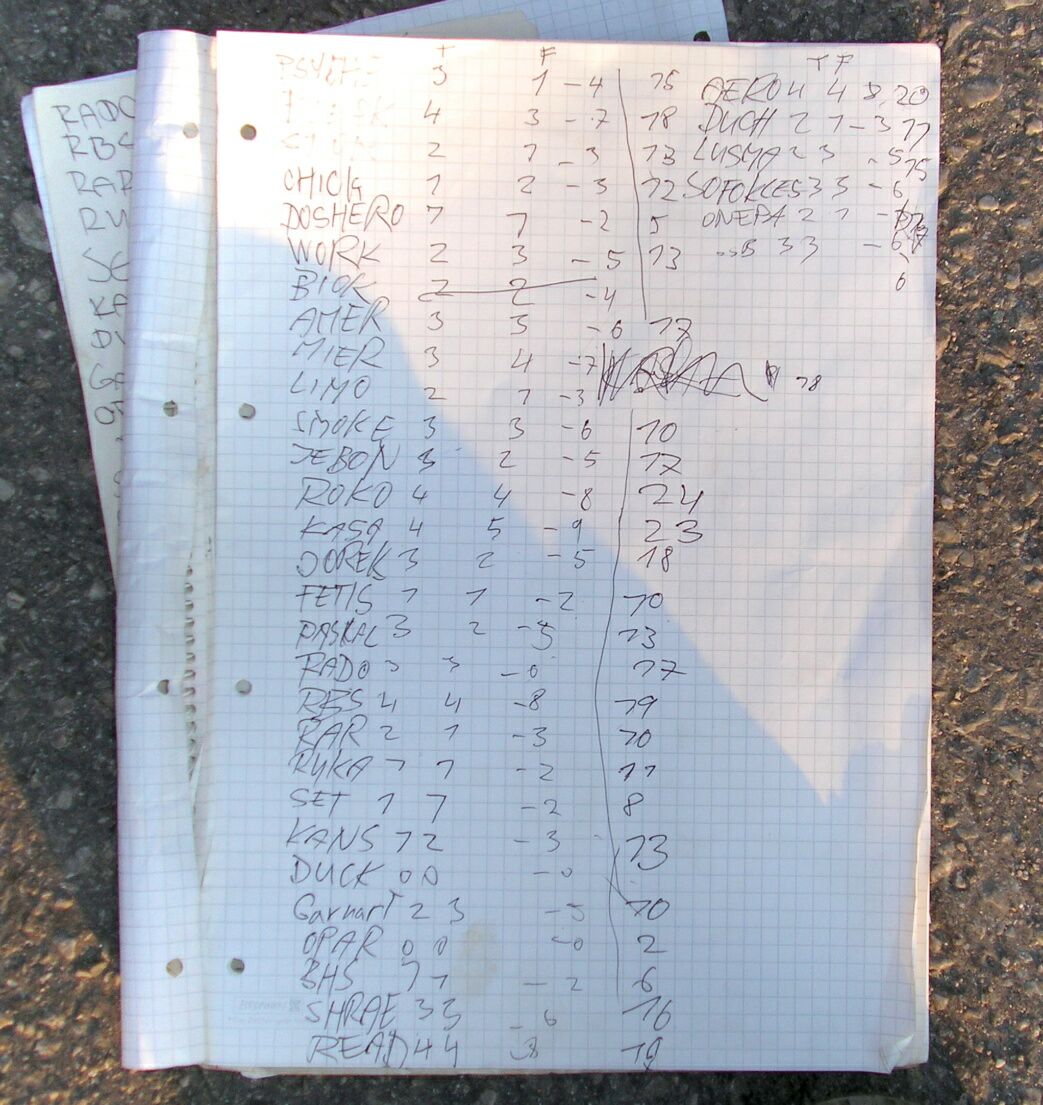 T F
PSYCHE 3 1 -4 15
4 3 -7 18
2 1 -3 13
CHICK 1 2 -3 12
DOSHERO 1 1 -2 5
WORK 2 3 -5 13
BIOK 2 2 -4
AMER 3 3 -6 17
MIER 3 4 -7 18
LIMO 2 1 -3
SMOKE 3 3 -6 10
JEBON 3 2 -5 17
ROKO 4 4 -8 24
KASA 4 5 -9 23
JOREK 3 2 -5 18
FETIS 1 1 -2 10
PASKAL 3 2 -5 13
RADO 3 3 -6 17
RBS 4 4 -8 19
RAR 2 1 -3 10
RYKA 1 1 -2 11
SET 1 1 -2 8
KANS 1 2 -3 13
DUCK 0 0 -0
Garnart 2 3 -5 10
OPAR 0 0 -0 2
BHS 1 1 -2 6
SHRAE 3 3 -6 16
READ 4 4 -8 19
T F
AERO 4 4 8 20
DUCH 2 1 -3 11
LUSMA 2 3 -5 15
SOFOKLES 3 3 -6
ONEPA 2 1
3 3 -6
6
RADO
RBS
RAR
RY
SE
KA